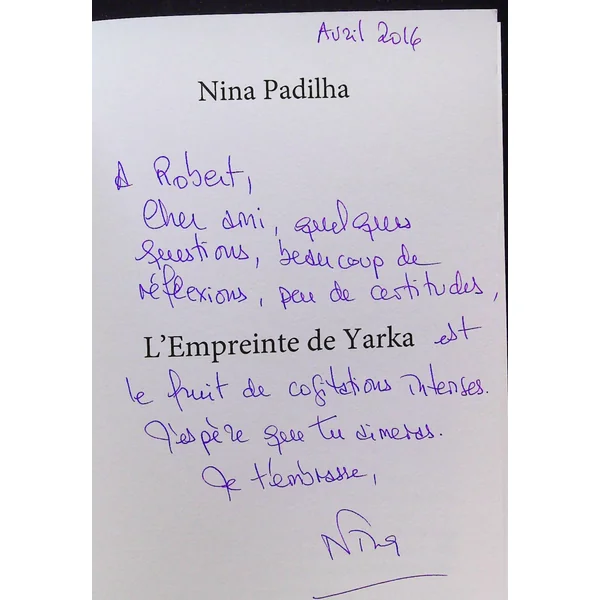 Avril 2016
Nina Padilha
A Robert,
Cher ami, quelques
questions, beaucoup de
réflexions, peu de certitudes,
L'Empreinte de Yarka est
le fruit de cogitations intenses.
J'espère que tu aimeras.
Je t'embrasse,
Nina